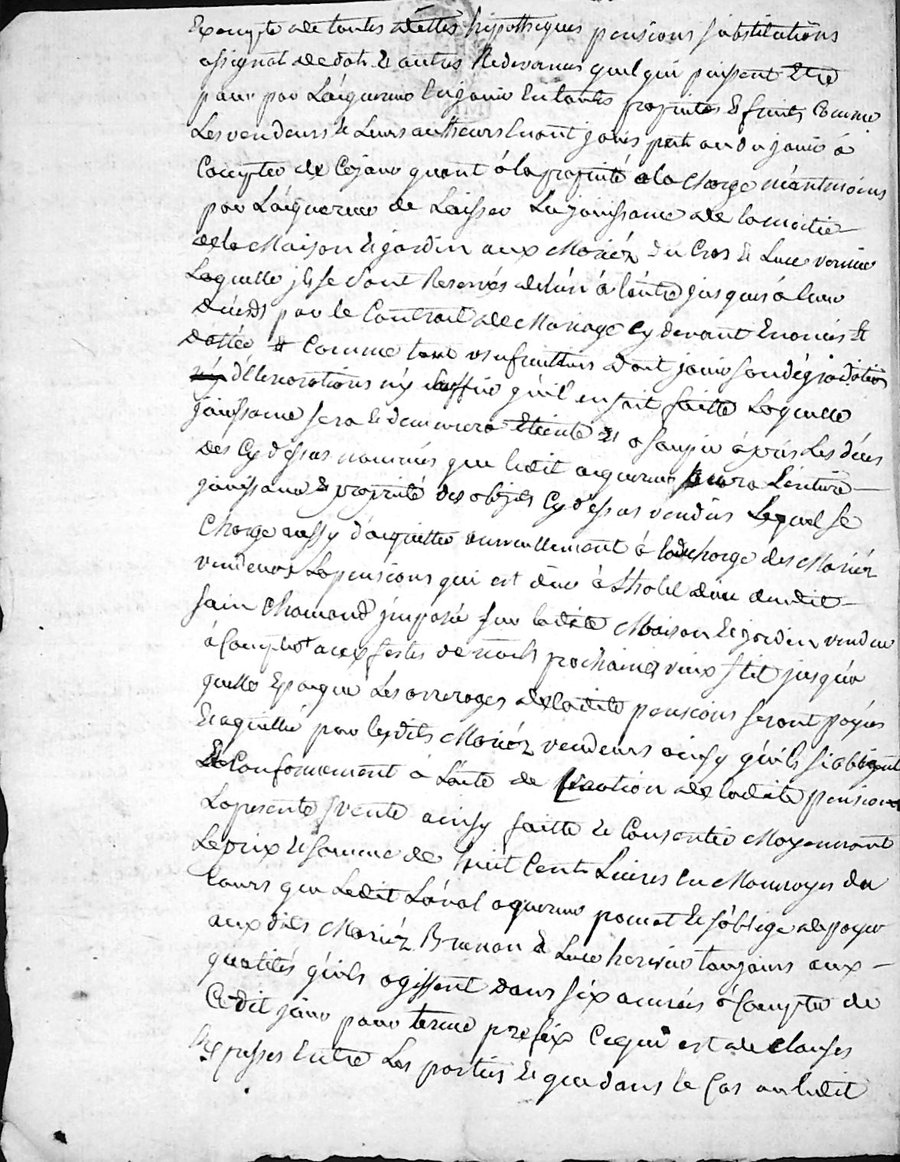 Exempte de toutes dettes hypotheques pensions substitutions
assignat de dot & autres Redevances quel qui puissent Etre
pour par Laquereur En jouir En toutes proprietes & fruits Comme
Les vendeurs & Leurs autheurs Enont jouis peut ou du jouir à
Compter de Cejour quant à la propriété à la Charge néantmoins
par Laquereur de Laisser La jouissance de la moitié
de la Maison & jardin aux Mariéz du Cros & Luce
Laquelle ils se sont Reservés de lun à lautre jusques à leur
Décéds par le Contrait de Mariage Cy devant Enoncés &
dattée Comme tout usufruittiers doit jouir sans dégradation
détériorations ny quil en soit faitte Laquelle
jouissance sera & demeurera Eteinte après Les déces
des Cy dessus nommés que ledit aquereur aura Lentiere
jouissance & propriété des objets Cy dessus vendus Lequel se
Charge aussy daquitter annuellement à la decharge des Mariéz
vendeurs La pensions qui est düe à Lhotel dieu dudit
saint Chamand jmposée sur ladite Maison & jardin vendue
à Compter aux festes de noel prochaines vieux stil jusqua
quelle Epoque Les arrerages de ladite pensions seront payés
& aquitté par lesdits Mariéz vendeurs ainsy quils sobligent
Conformement à Lacte de ladite pensions
La presente vente ainsy faitte & Consentie Moyennant
Le prix & somme de huit Cents Livres En Monnoyes du
Cours que Ledit Laval aquereur promet & soblige de payer
aux dits Mariéz & Luce toujours aux
qualités quils agissent dans six années à Compter de
Cedit jour pour terme prefix Ce qui est de Clauses
Expresses Entre Les parties & que dans le Cas ou ledit